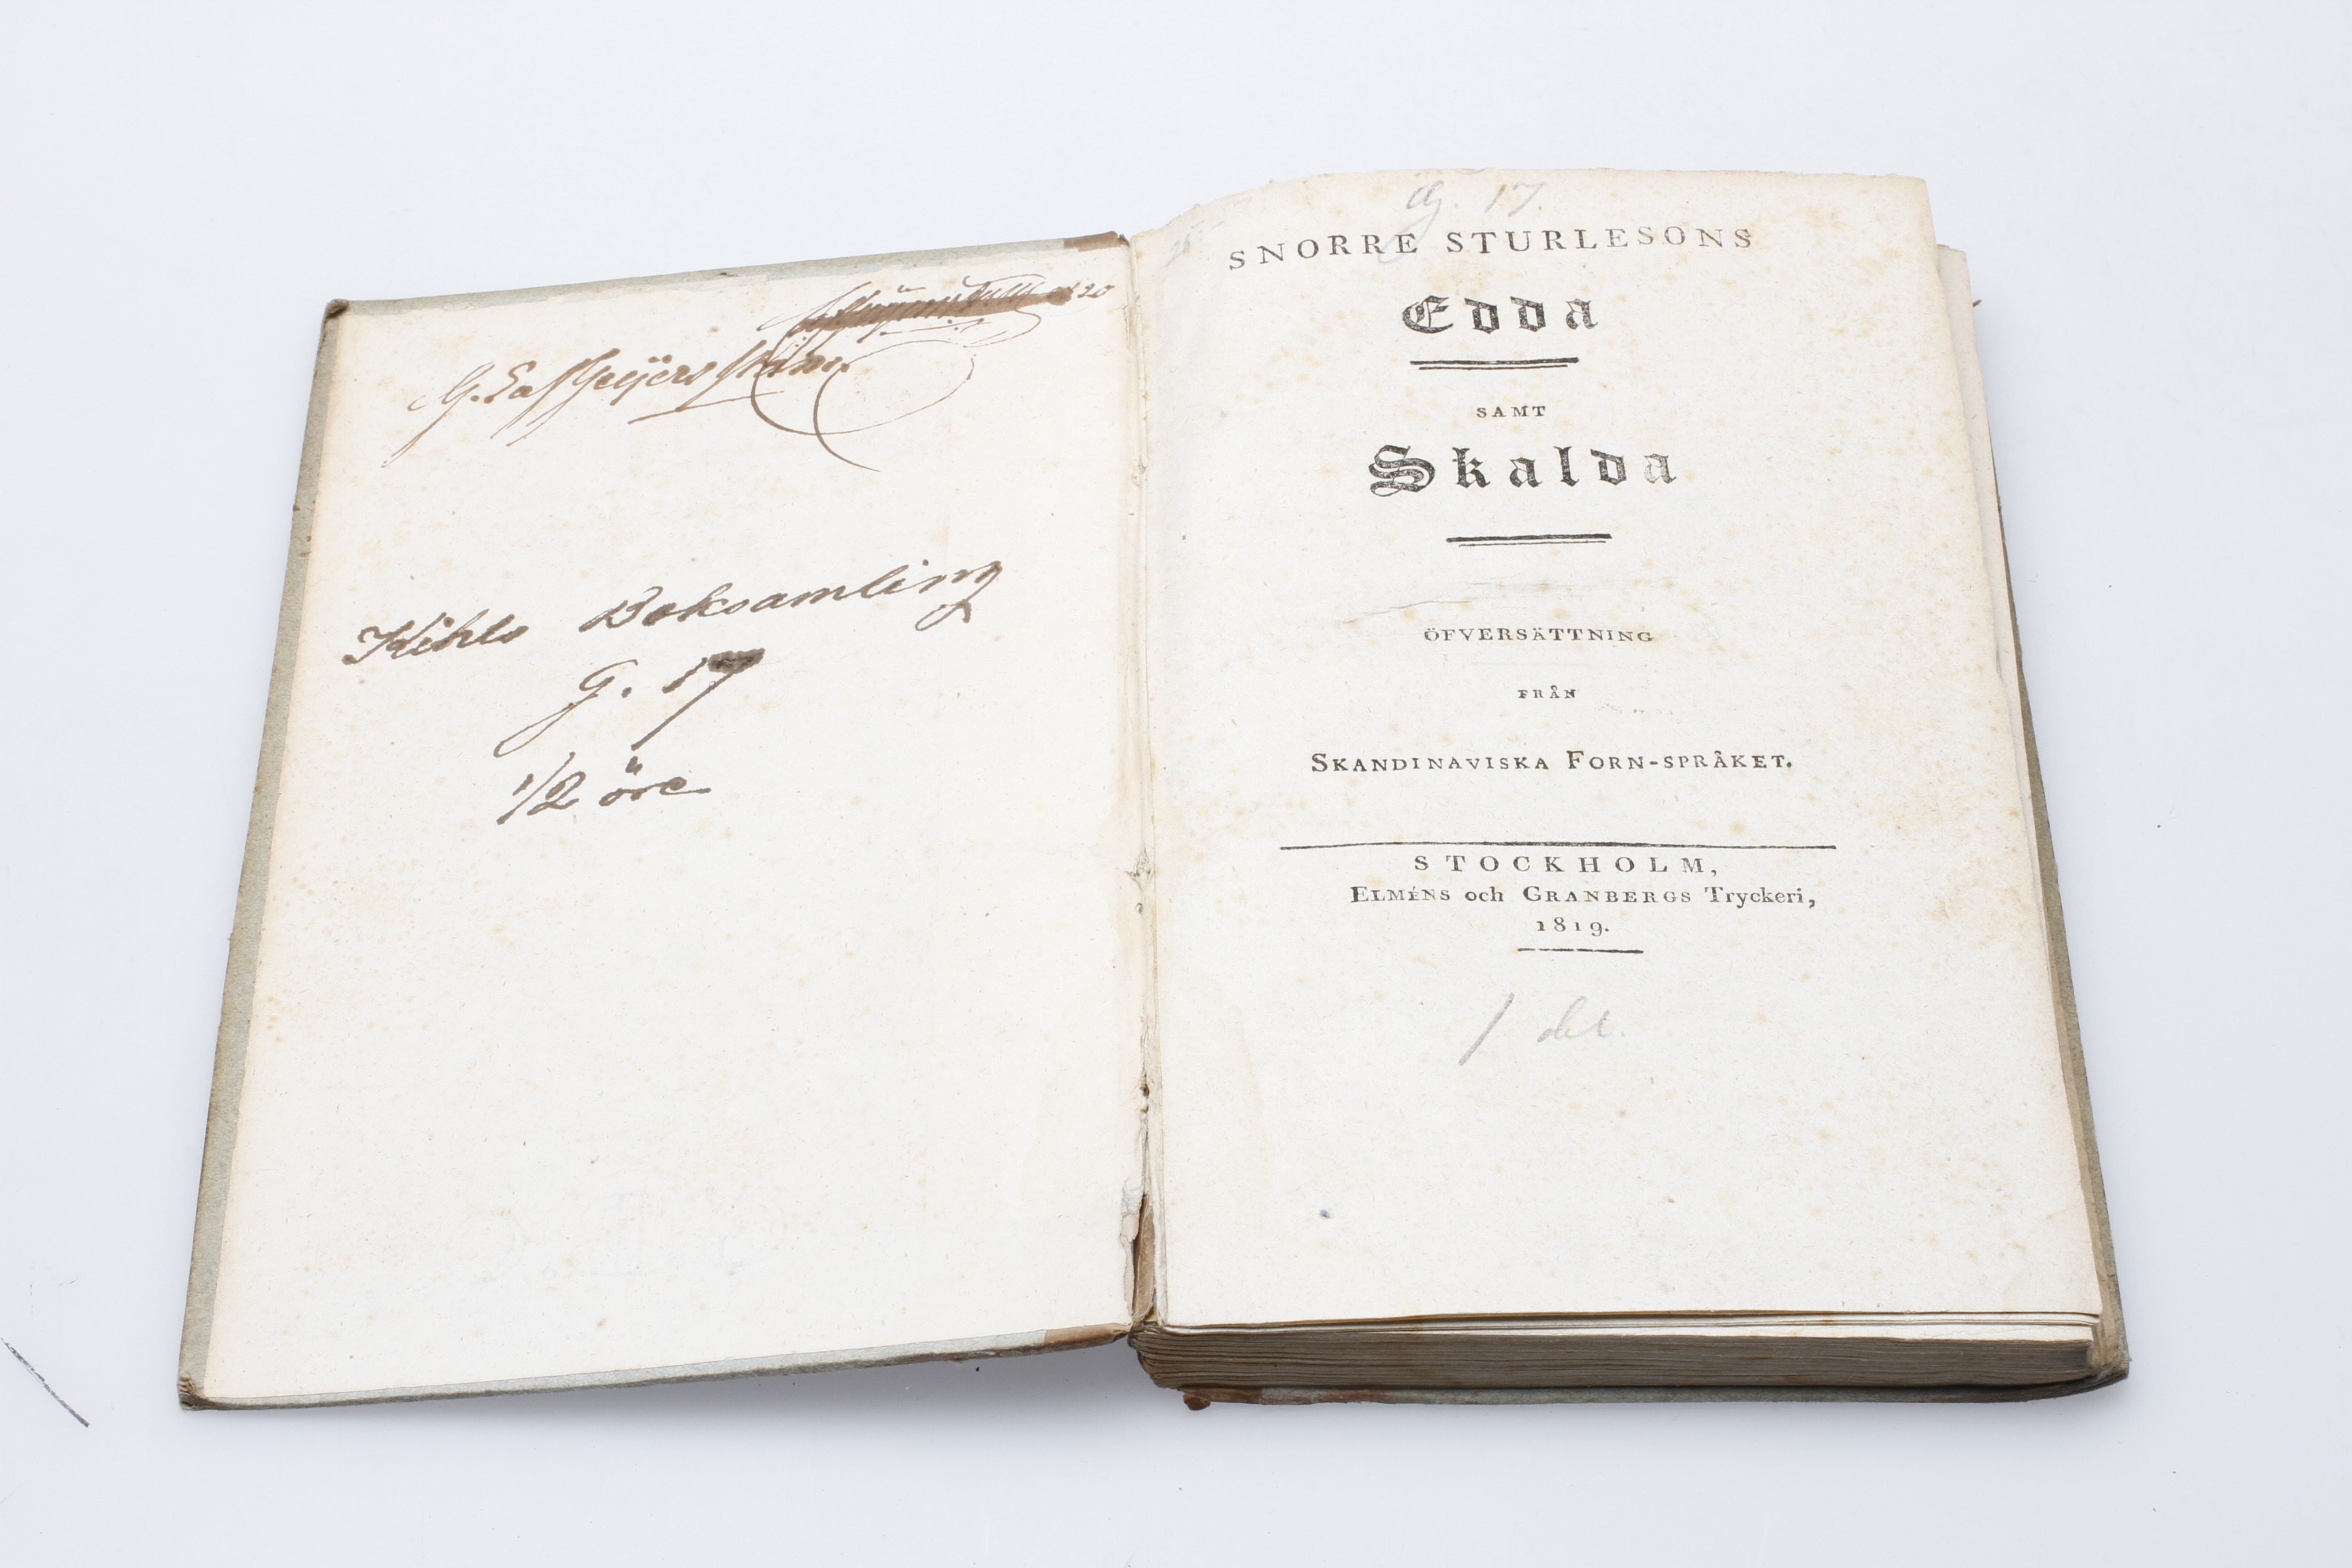 1820
G. E af Geijerstam.
Kihls Boksamling
G. 17
1/2 öre
G. 17.
SNORRE STURLESONS
Edda
SAMT
Skalda
ÖFVERSÄTTNING
FRÅN
SKANDINAVISKA FORN-SPRÅKET.
STOCKHOLM,
ELMÉNS och GRANBERGS Tryckeri,
1819.